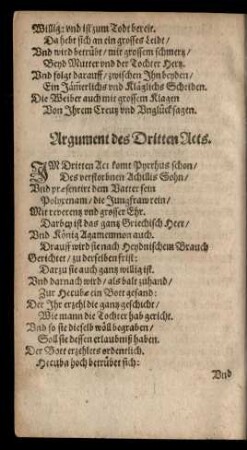 Willig: vnd ist zum Todt bereit.
Da hebt sich an ein grosses Leidt/
Vnd wird betrübt/ mit grossem schmertz/
Beyd Mutter vnd der Tochter Hertz.
Vnd folgt darauff/ zwischen Ihn beyden/
Ein Jämerlichs vnd Kläglichs Scheiden.
Die Weiber auch mit grossem Klagen
Von Ihrem Creutz vnd Vnglück sagen.
Argument des Dritten Acts.
IM Dritten Act komt Pyrrhus schon/
Des verstorbnen Achillis Sohn/
Vnd præsentirt dem Vatter sein
Polyxenam, die Jungfraw rein/
Mit reverentz vnd grosser Ehr.
Darbey ist das gantz Griechisch Heer/
Vnd König Agamemnon auch.
Drauff wird sie nach Heydnischem Brauch
Gerichtet/ zu derselben frist:
Darzu sie auch gantz willig ist.
Vnd darnach wird/ als bald zuhand/
Zur Hecubæ ein Bott gesand:
Der Ihr erzehl die gantz geschicht/
Wie mann die Tochter hab gericht.
Vnd so sie dieselb wöll begraben/
Soll sie dessen erlaubniß haben.
Der Bott erzehlets ordentlich.
Hecuba hoch betrübet sich:
Vnd